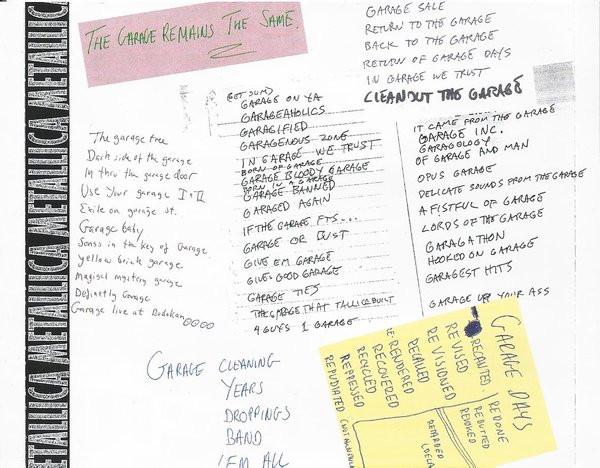 METALLICA METALLICA METALLICA METALLICA
THE GARAGE REMAINS THE SAME.
GARAGE SALE
RETURN TO THE GARAGE
BACK TO THE GARAGE
RETURN OF GARAGE DAYS
IN GARAGE WE TRUST
CLEANOUT THE GARAGE
The garage tree
Dark side of the garage
In thru the garage door
Use Your garage I + II
Exile on garage st.
Garage baby
Songs in the key of Garage
yellow brick garage
Magical mystery garage
Definetly Garage
Garage live at Budokan
GET SUM
GARAGE ON YA
GARAGEAHOLICS
GARAGIFIED
GARAGENOUS ZONE
IN GARAGE WE TRUST
BORN OF GARAGE
GARAGE BLOODY GARAGE
BORN IN A GARAGE
GARAGE BANNED
GARAGED AGAIN
IF THE GARAGE FTS...
GARAGE OR BUST
GIVE EM GARAGE
GIVES GOOD GARAGE
GARAGE TIES
THE GARAGE THAT TALLICA BUILT
4 GUYS 1 GARAGE
IT CAME FROM THE GARAGE
GARAGE INC.
GARAGOLOGY
OF GARAGE AND MAN
OPUS GARAGE
DELICATE SOUNDS FROM THE GARAGE
A FISTFUL OF GARAGE
LORDS OF THE GARAGE
GARAGATHON
HOOKED ON GARAGE
GARAGEST HITS
GARAGE UP YOUR ASS
GARAGE CLEANING
YEARS
DROPPINGS
BAND
'EM ALL
GARAGE DAYS
REDONE
REBUTTED
REVOKED
RECANTED
REVISED
RE VISIONED
RECALLED
RE-RENDERED
RECOVERED
RECYCLED
REPRESSED
REPUDIATED
RETARDED